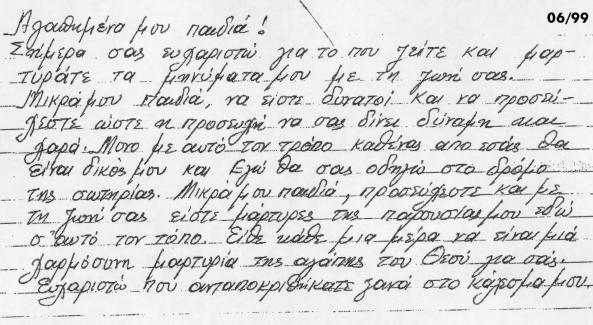 06/99
Αγαπημένα μου παιδιά!
Σήμερα σας ευχαριστώ για το που ζείτε και μαρ-
τυράτε τα μηνύματα μου με τη ζωή σας.
Μικρά μου παιδιά, να είστε δυνατοί και να προσεύ-
χεστε ώστε η προσευχή να σας δίνει δύναμη και
χαρά. Μονο με αυτό τον τρόπο καθένας απο εσάς θα
είναι δικός μου και Εγώ θα σας οδηγώ στο δρόμο
της σωτηρίας. Μικρά μου παιδιά, προσεύχεστε και με
τη ζωή σας είστε μάρτυρες της παρουσίας μου εδώ
σ' αυτό τον τόπο. Είθε κάθε μια μέρα να είναι μιά
χαρμόσυνη μαρτυρία της αγάπης του Θεού για σας.
Ευχαριστώ που ανταποκριθήκατε ξανά στο κάλεσμα μου.